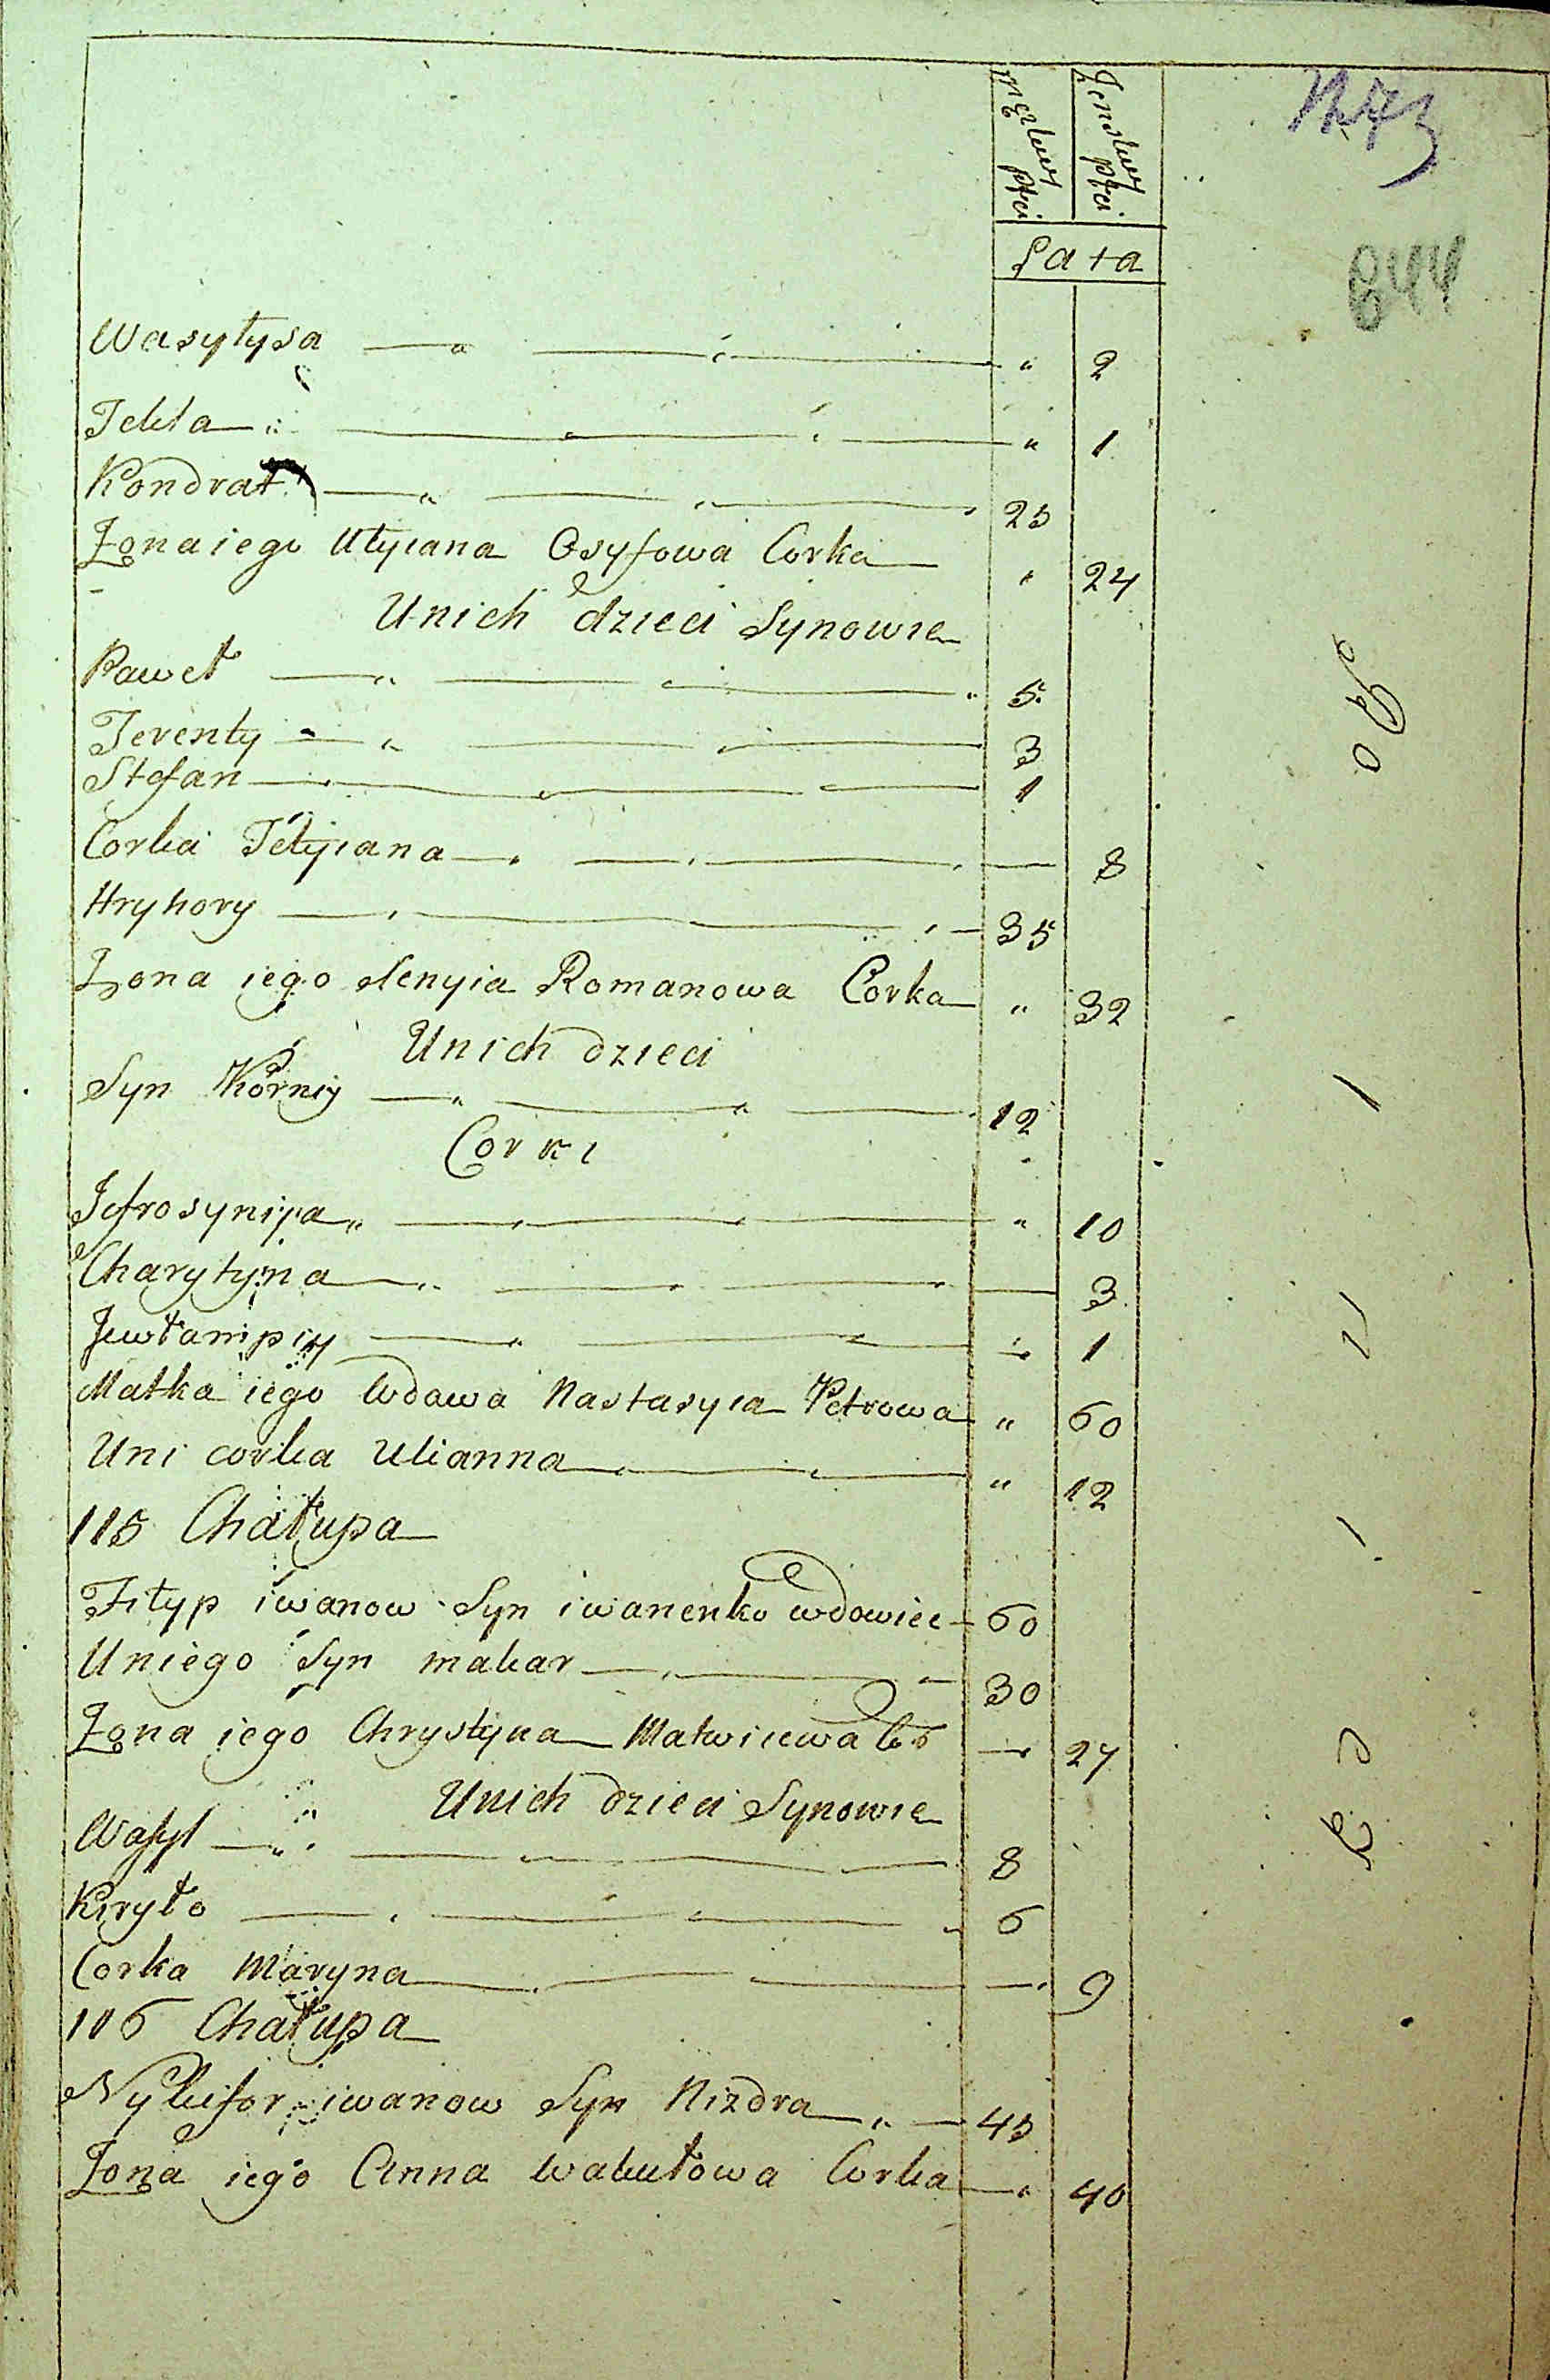 męzkiey płci
żenskiey płci
Łata
844
Wasyłysa " 2
Tekla " 1
Kondrat 25
Żona iego Ulyiana Osyfowa Corka " 24
Unich dzieci Synowie
Paweł 5
Terenty 3
Stefan 1
Corka Tetyiana 8
Hryhory 35
Żona iego Xenyia Romanowa Corka " 32
Unich dzieci
Syn Korniy 12
Corki
Jefrosyniya " 10
Charytyna 3
Jewłampiy 1
Matka iego wdowa Nastasyia Petrowa " 60
Uni corka Ulianna " 12
115 Chałupa
Fiłyp iwanow Syn iwanenko wdowiec 60
Uniego Syn makar 30
Żona iego Chrystyna Matwiiewa 27
Unich dzieci Synowie
Wasyl 8
Kiryło 6
Corka Maryna 9
116 Chałupa
Nykifor iwanow Syn Nizdra 45
Żona iego Anna wakułowa Corka " 40